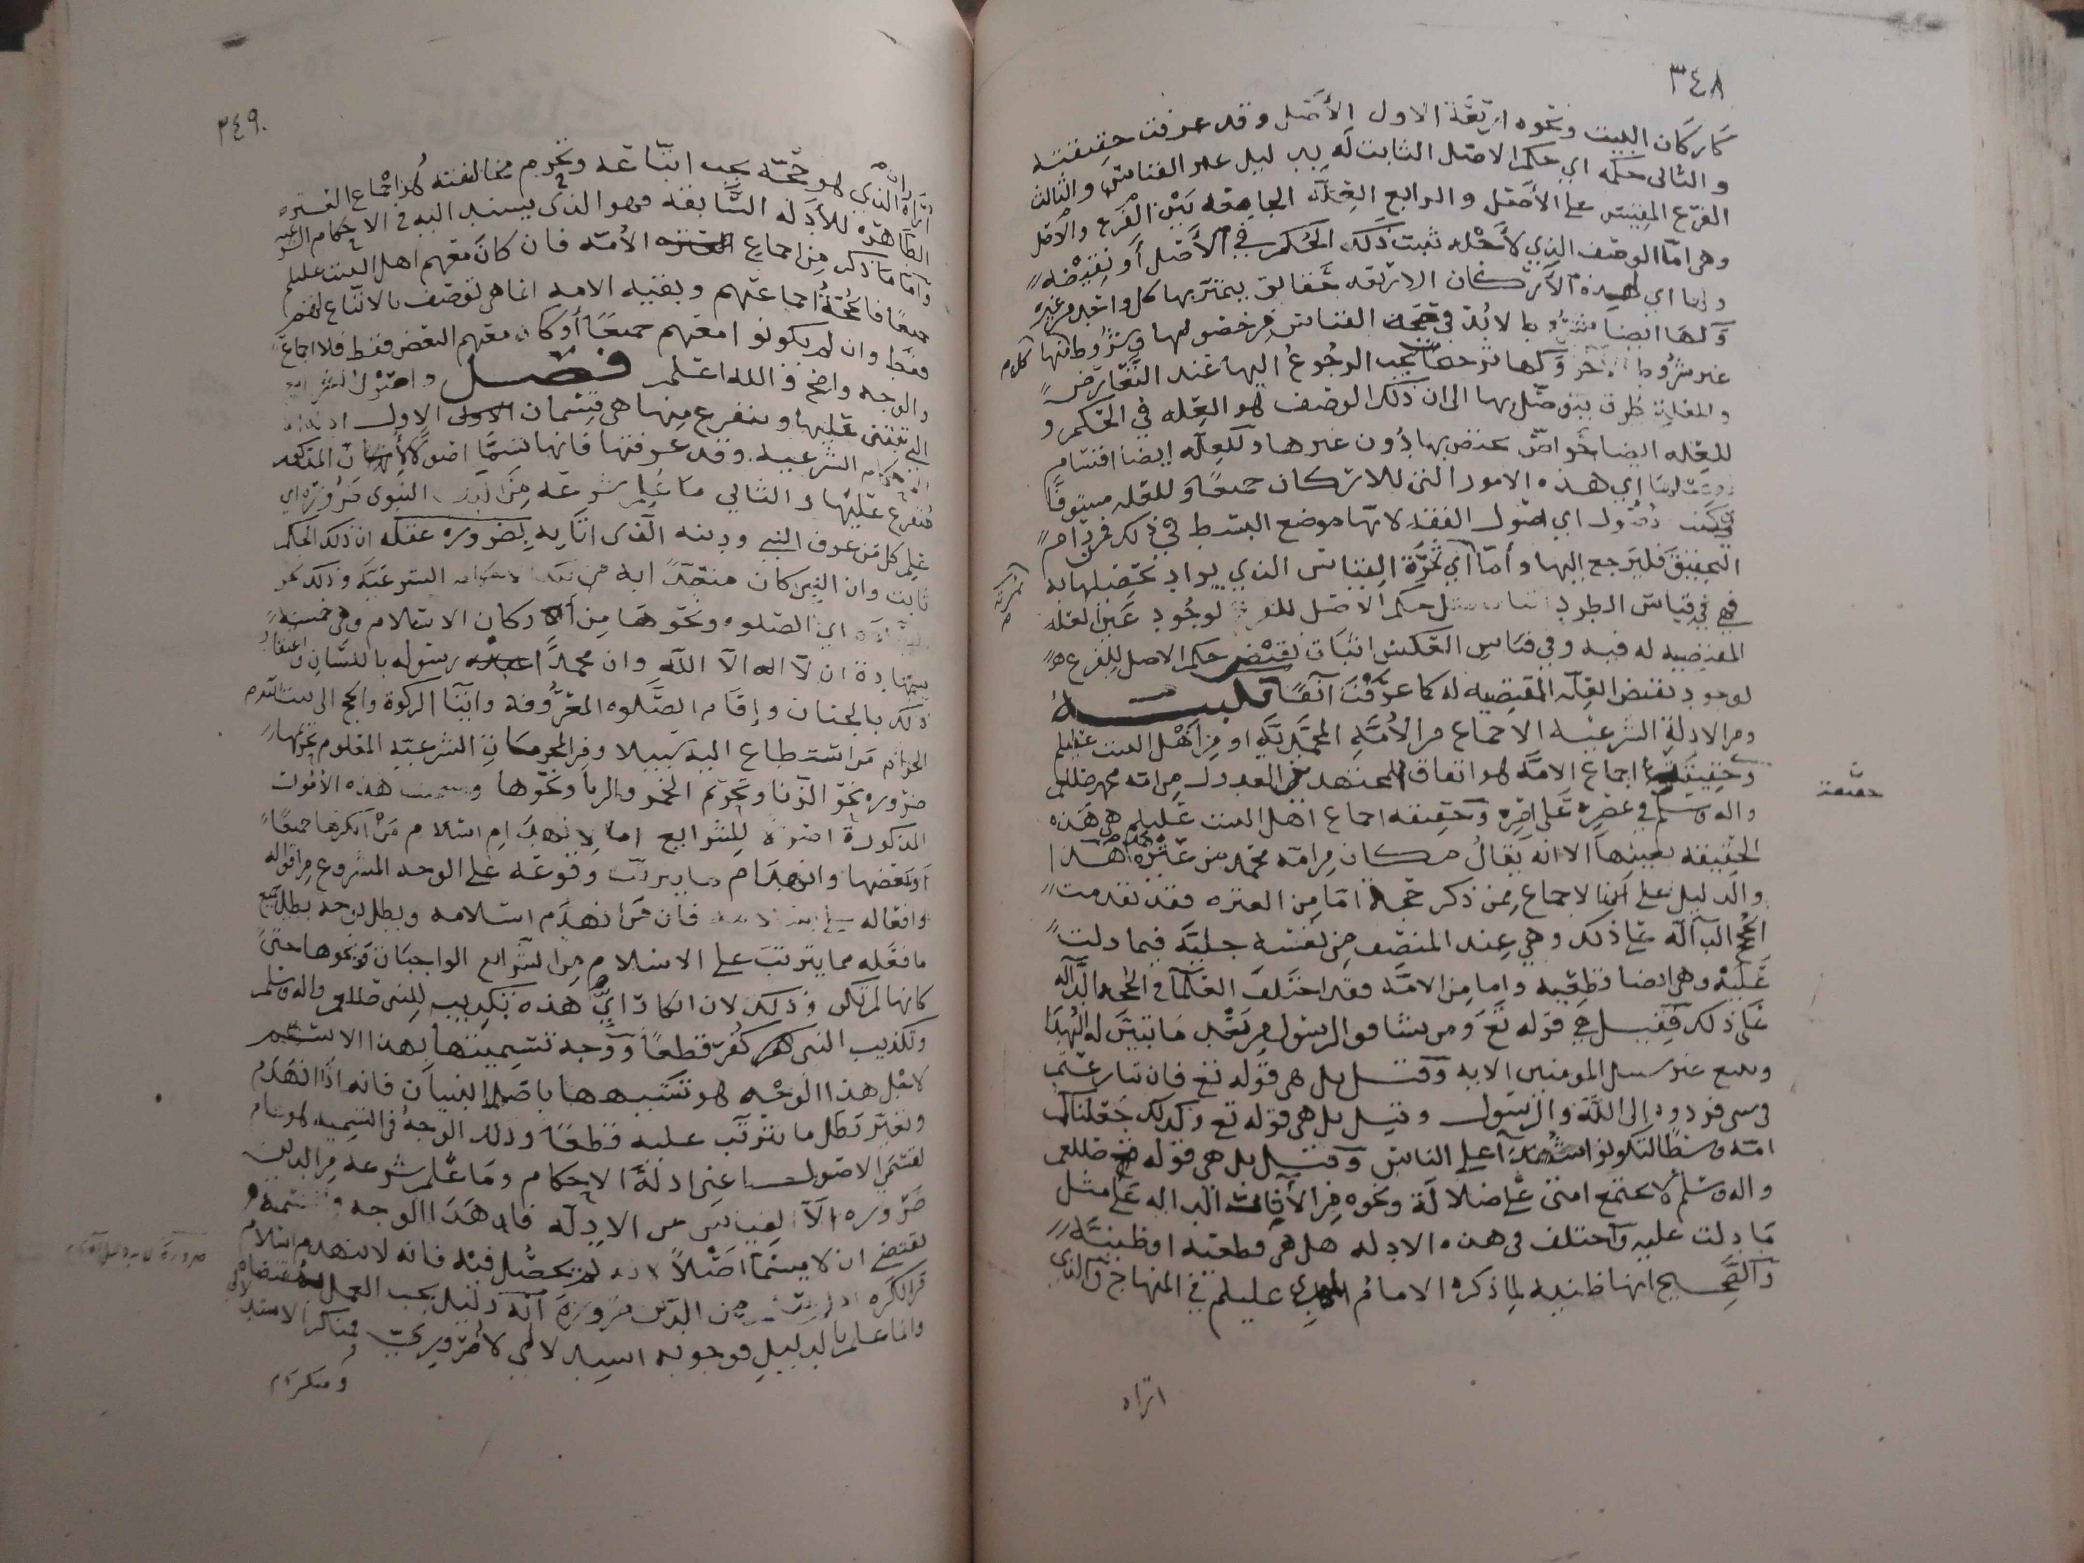 ٣٤٨
كاركان البيت ونحوه اربعة الاول الأصل وقد عرفت حقيقته
والثاني حكمه اي حكم الاصل الثابت له بدليل غير القياس والثالث
الفرع المقيس على الأصل والرابع العلة الجامعة بين الفرع والأصل
وهي اما الوصف الذي لأجله ثبت ذلك الحكم في الأصل أو نقيضه
ولها اي لهذه الأركان الاربعة حقائق يتميز بها كل واحد من غيره
ولها ايضا شروط لا بد في صحة القياس من حصولها وشروط كل منها
غير شروط الآخر وكلها توضحات يجب الرجوع اليها عند التعارض
والعلة طرق يتوصل بها الى ان ذلك الوصف هو العلة في الحكم و
للعلة ايضا خواص تختص بها دون غيرها وللعلة ايضا اقسام
اي هذه الامور التي للاركان جميعا وللعلة مستوفا
في كتب اصول اي اصول الفقه لانها موضع البسط في ذلك فمن رام
التحقيق فليرجع اليها وأما اي ثمرة القياس الذي يراد تحصيلها به
فهي في قياس الطرد اثبات مثل حكم الاصل للفرع لوجود عين العلة
المقتضية له فيه وفي قياس العكس اثبات نقيض حكم الاصل للفرع هو
لوجود نقيض العلة المقتضية له كما عرفت آنفا تنبيه
ومن الادلة الشرعية الاجماع من الأمة المحمدية او من أهل البيت عليلم
وحقيقة اجماع الامة هو اتفاق المجتهدين العدول من امة محمد صللم
واله وسلم في عصر على امر وحقيقة اجماع اهل البيت عليلم هي هذه
الحقيقة بعينها الا انه يقال مكان من امة محمد من عترة محمد هذا
والدليل على ان الاجماع ممن ذكر حجة اما من العترة فقد تقدمت
الحجج الدالة على ذلك وهي عند المنصف من نفسه جلية فيما دلت
عليه وهي ايضا قطعية واما من الامة فقد اختلف العلماء في الحجة الدالة
على ذلك فقيل هي قوله تع ومن يشاقق الرسول من بعد ما تبين له الهدا
ويتبع غير سبيل المومنين الاية وقيل بل هي قوله تع فان تنازعتم
في شي فردوه إلى الله والرسول وقيل بل هي قوله تع وكذلك جعلناكم
امة وسطا لتكونوا شهداء على الناس وقيل بل هي قوله صللم
واله وسلم لا تجتمع امتي على ضلالة ونحوه من الأثار الدالة على مثل
ما دلت عليه واختلف في هذه الادلة هل هي قطعية او ظنية
والصحيح انها ظنية لما ذكره الامام المهدي عليلم في المنهاج والذي
حقيقة
اراه
٣٤٩
أراه الذي هو حجة يجب اتباعه وتحرم مخالفته هو اجماع العترة
الطاهرة للأدلة السابقة فهو الذي يستند اليه في الاحكام الشرعية
واما ما ذكر من اجماع الأمة فان كان معهم اهل البيت عليلم
جميعا فالحجة اجماعهم وبقية الامة انما هي توصف بالاتباع لهم
فقط وان لم يكونوا معهم جميعا أو كان معهم البعض فقط فلا اجماع
والوجه واضح والله اعلم فصل واصول الشرايع
التي تبتنى عليها ويتفرع منها هي قسمان الاول ادلة
الاحكام الشرعية وقد عرفتها فانها تسما اصولا لأن المذكور
متفرع عليها والثاني ما علم شرعه من الدين النبوي ضرورة اي
علم كل من عرف النبي ودينه الذي اتا به بضرورة عقله ان ذلك الحكم
ثابت وان النبي كان متعبدا به من الاحكام الشرعية وذلك نحو
اي الصلوة ونحوها من أركان الاسلام وهي خمسة
شهادة ان لا اله الا الله وان محمدا رسوله باللسان واعتقاد
ذلك بالجنان وإقام الصلوة المعروفة وايتا الزكوة والحج الى بيت الله
الحرام من استطاع اليه سبيلا ومن المحرمات الشرعية المعلوم تحريمها
ضرورة نحو الزنا وتحريم الخمر والربا ونحوها وسميت هذه الأمور
المذكورة اصولا للشرايع اما لانهدام اسلام من انكرها جميعا
او بعضها وانهدام ما يترتب وقوعه على الوجه المشروع من اقواله
وافعاله على اسلامه فان من انهدم اسلامه وبطل توحده بطل جميع
ما فعله مما يترتب على الاسلام من الشرايع الواجبات ونحوها حتى
كانها لم تكن وذلك لان انكار اي هذه تكذيب للنبي صللم واله وسلم
وتكذيب النبي كفر قطعا ووجه تسميتها بهذا الاسم
لاجل هذا الوجه هو تشبيهها باصل البنيان فانه اذا انهدم
وتغير بطل ما يترتب عليه قطعا وذلك الوجه في التسمية هو عام
لقسمي الاصول اعني ادلة الاحكام وما علم شرعه من الدين
ضرورة الا القياس من الادلة فان هذا الوجه في التسمية
يقتضي ان لا يسما اصلا لانه لم يحصل فيه فانه لا ينهدم اسلام
من انكره اذ ليس من الدين ضرورة انه دليل يجب العمل بمقتضاه
وانما علم بالدليل فوجوبه استدلالي لا ضروري ومنكر الاستدلالي
ومنكر